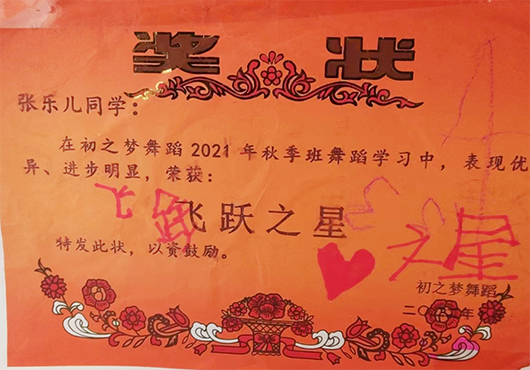 奖状
张乐儿同学：
在初之梦舞蹈2021年秋季班舞蹈学习中，表现优
异、进步明显，荣获：
飞跃之星
之星
特发此状，以资鼓励。
初之梦舞蹈
二〇 年